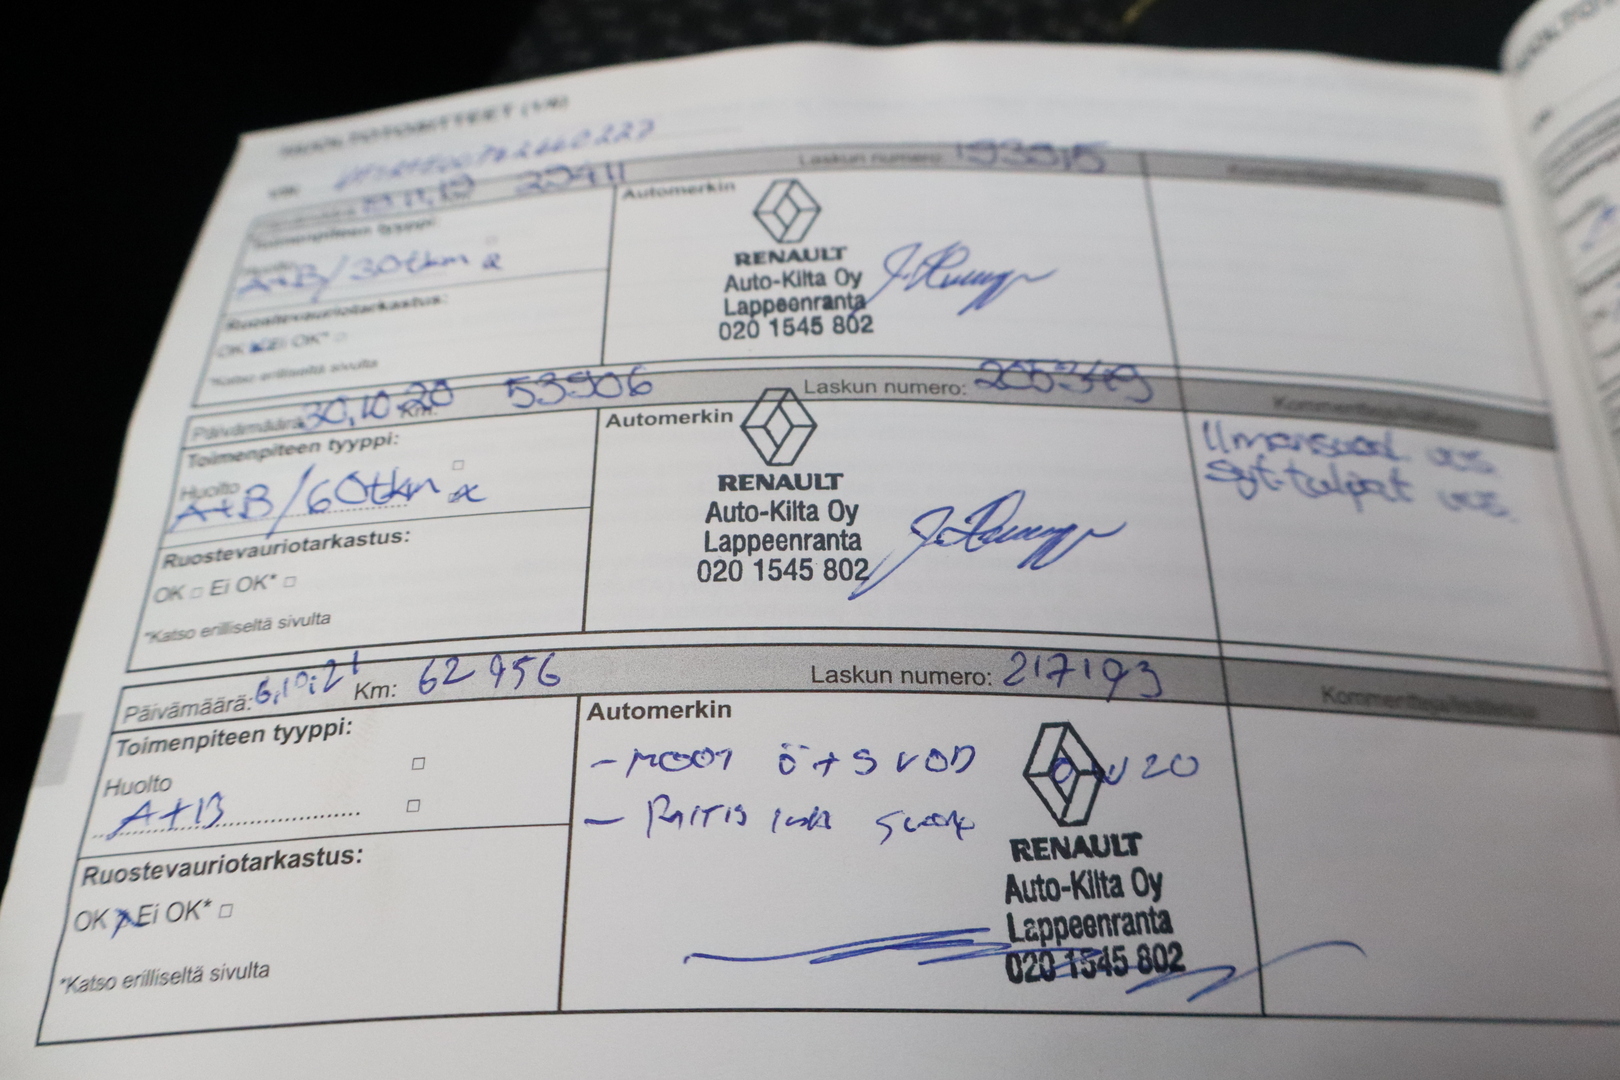 HUOLTOTOIMITTEET (1/4)
Laskun numero: 193915
29411
Automerkin
Toimenpiteen tyyppi:
Huolto
A+B/30tkm x
Ruostevauriotarkastus:
OK x Ei OK* □
*Katso erilliseltä sivulta
RENAULT
Auto-Kilta Oy
Lappeenranta
020 1545 802
Päivämäärä: 30,10.20 Km: 53906 Laskun numero: 205349
Toimenpiteen tyyppi:
Huolto □
A+B/60tkm x
Ruostevauriotarkastus:
OK □ Ei OK* □
*Katso erilliseltä sivulta
Automerkin
RENAULT
Auto-Kilta Oy
Lappeenranta
020 1545 802
Ilmansuod. vos.
Syt.tulpat vos.
Päivämäärä: 6,10,21 Km: 62956 Laskun numero: 217193
Toimenpiteen tyyppi: □
Huolto
A+B □
Ruostevauriotarkastus:
OK x Ei OK* □
*Katso erilliseltä sivulta
Automerkin
- Moot Ö+S VOD
- Raitis
RENAULT
Auto-Kilta Oy
Lappeenranta
020 1545 802